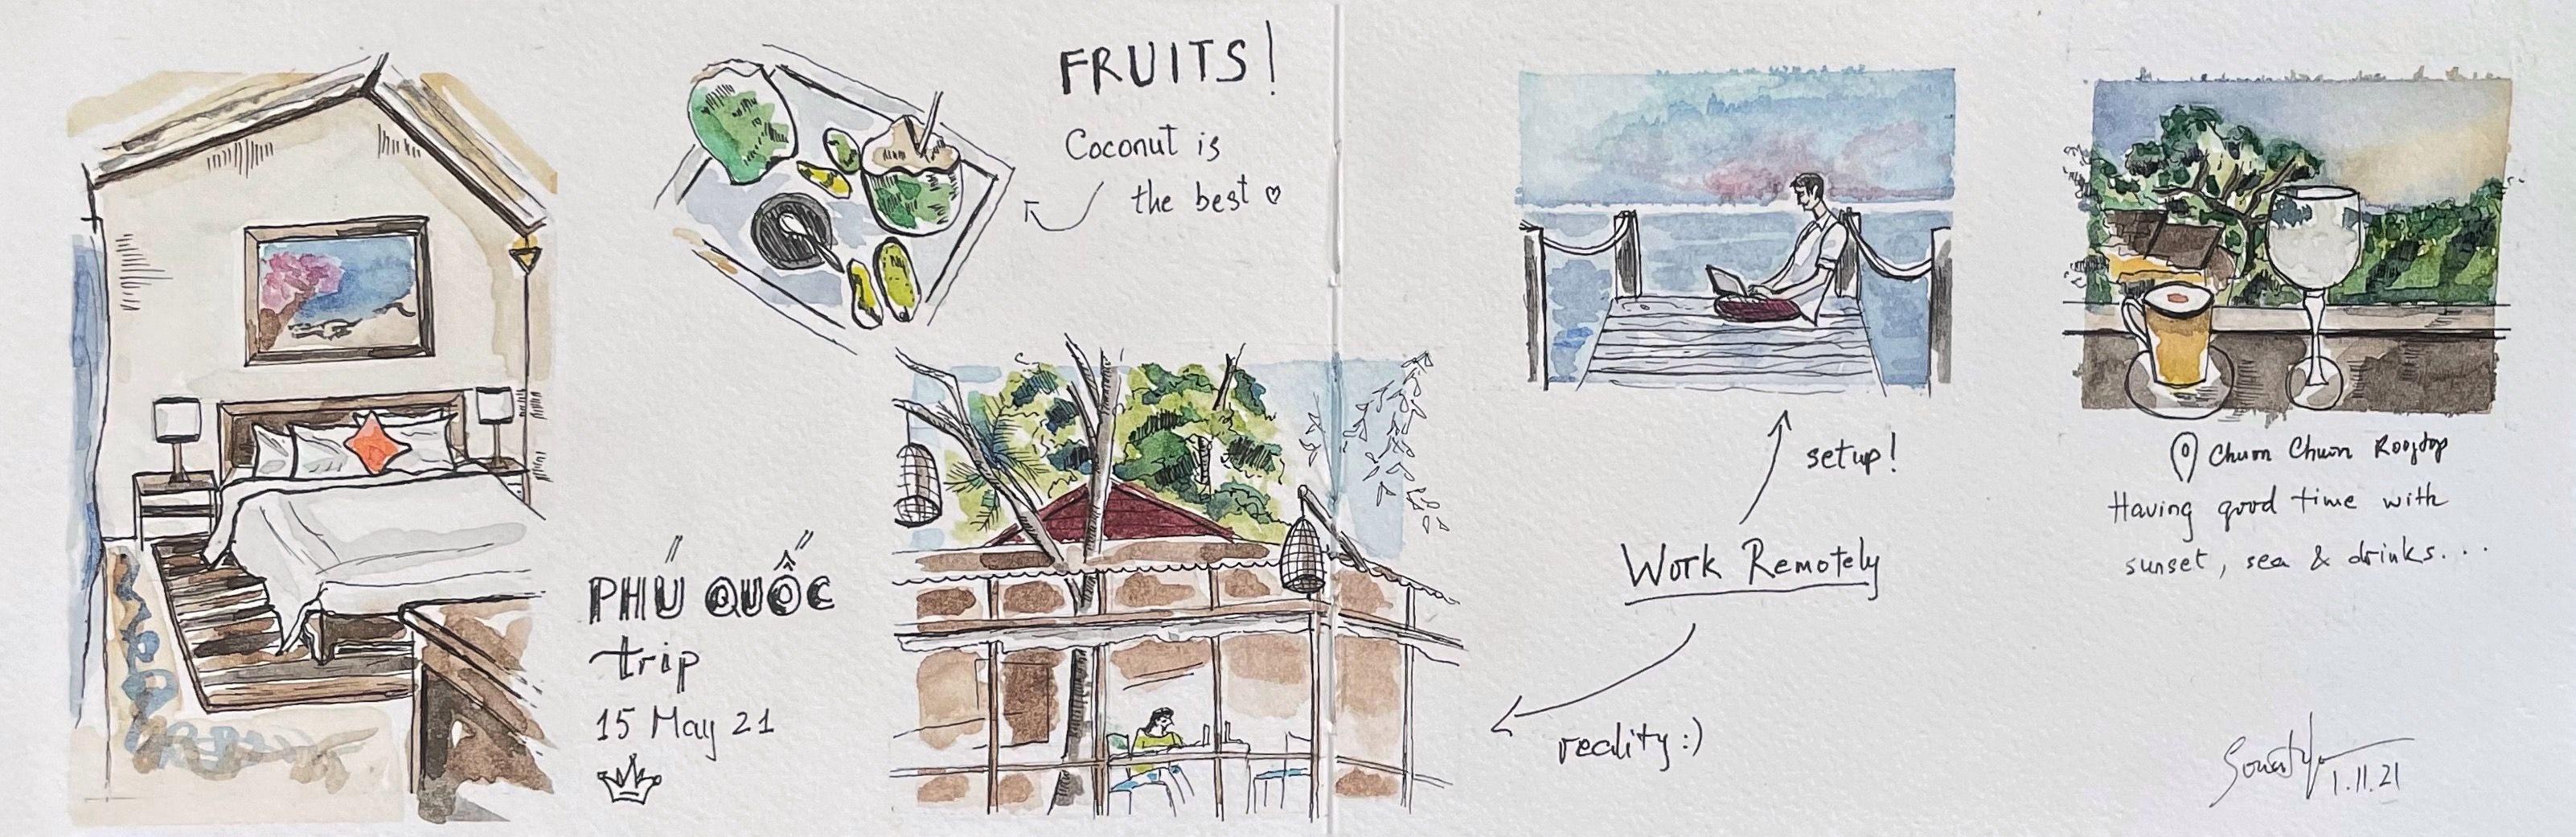 FRUITS!
Coconut is
the best ♡
PHÚ QUỐC
trip
15 May 21
setup!
Work Remotely
reality :)
Chuon Chuon Rooftop
Having good time with
sunset, sea & drinks...
1.11.21